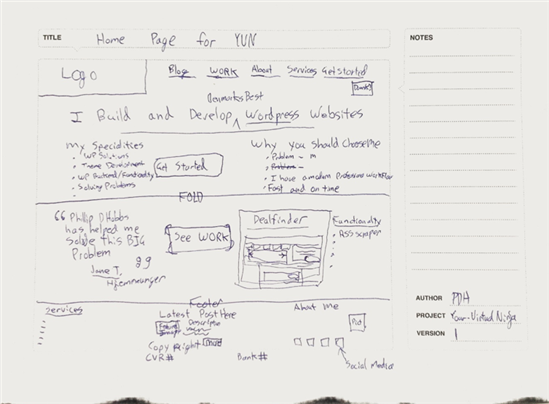 TITLE Home Page for YUN
NOTES
Logo
Blog WORK About Services Get started
Denmarks Best
I Build and Develop Wordpress Websites
My Specialities
WP Solutions
Theme Development
WP Backend/Functionality
Solving Problems
Get Started
Why you should Choose Me
Problem - m
Problem -
I have a modern Professional Workflow
Fast and on time
FOLD
66 Phillip D Hobbs
has helped me
solve this BIG
Problem
99
Jane T.
See WORK
Dealfinder
Functionality
RSS scraper
Footer
Services
Latest Post Here
Descriptive
About Me
Pic
Copyright
CVR#
Bank#
Social Media
AUTHOR PDH
PROJECT Your-Virtual Ninja
VERSION 1